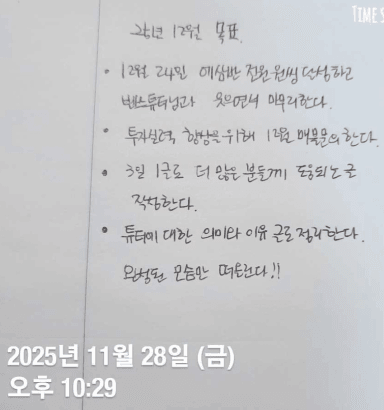 TIME S
25년 12월 목표.
• 12월 24일 에삼반 전원 원씽 달성하고
벤츠튜터님과 웃으면서 마무리한다.
• 투자실력 향상을 위해 12월 매물문의한다.
• 3일 1글로 더 많은 분들께 도움되는 글
작성한다.
• 튜터에 대한 의미와 이유 글로 정리한다.
완성된 모습만 떠올린다!!
2025년 11월 28일 (금)
오후 10:29